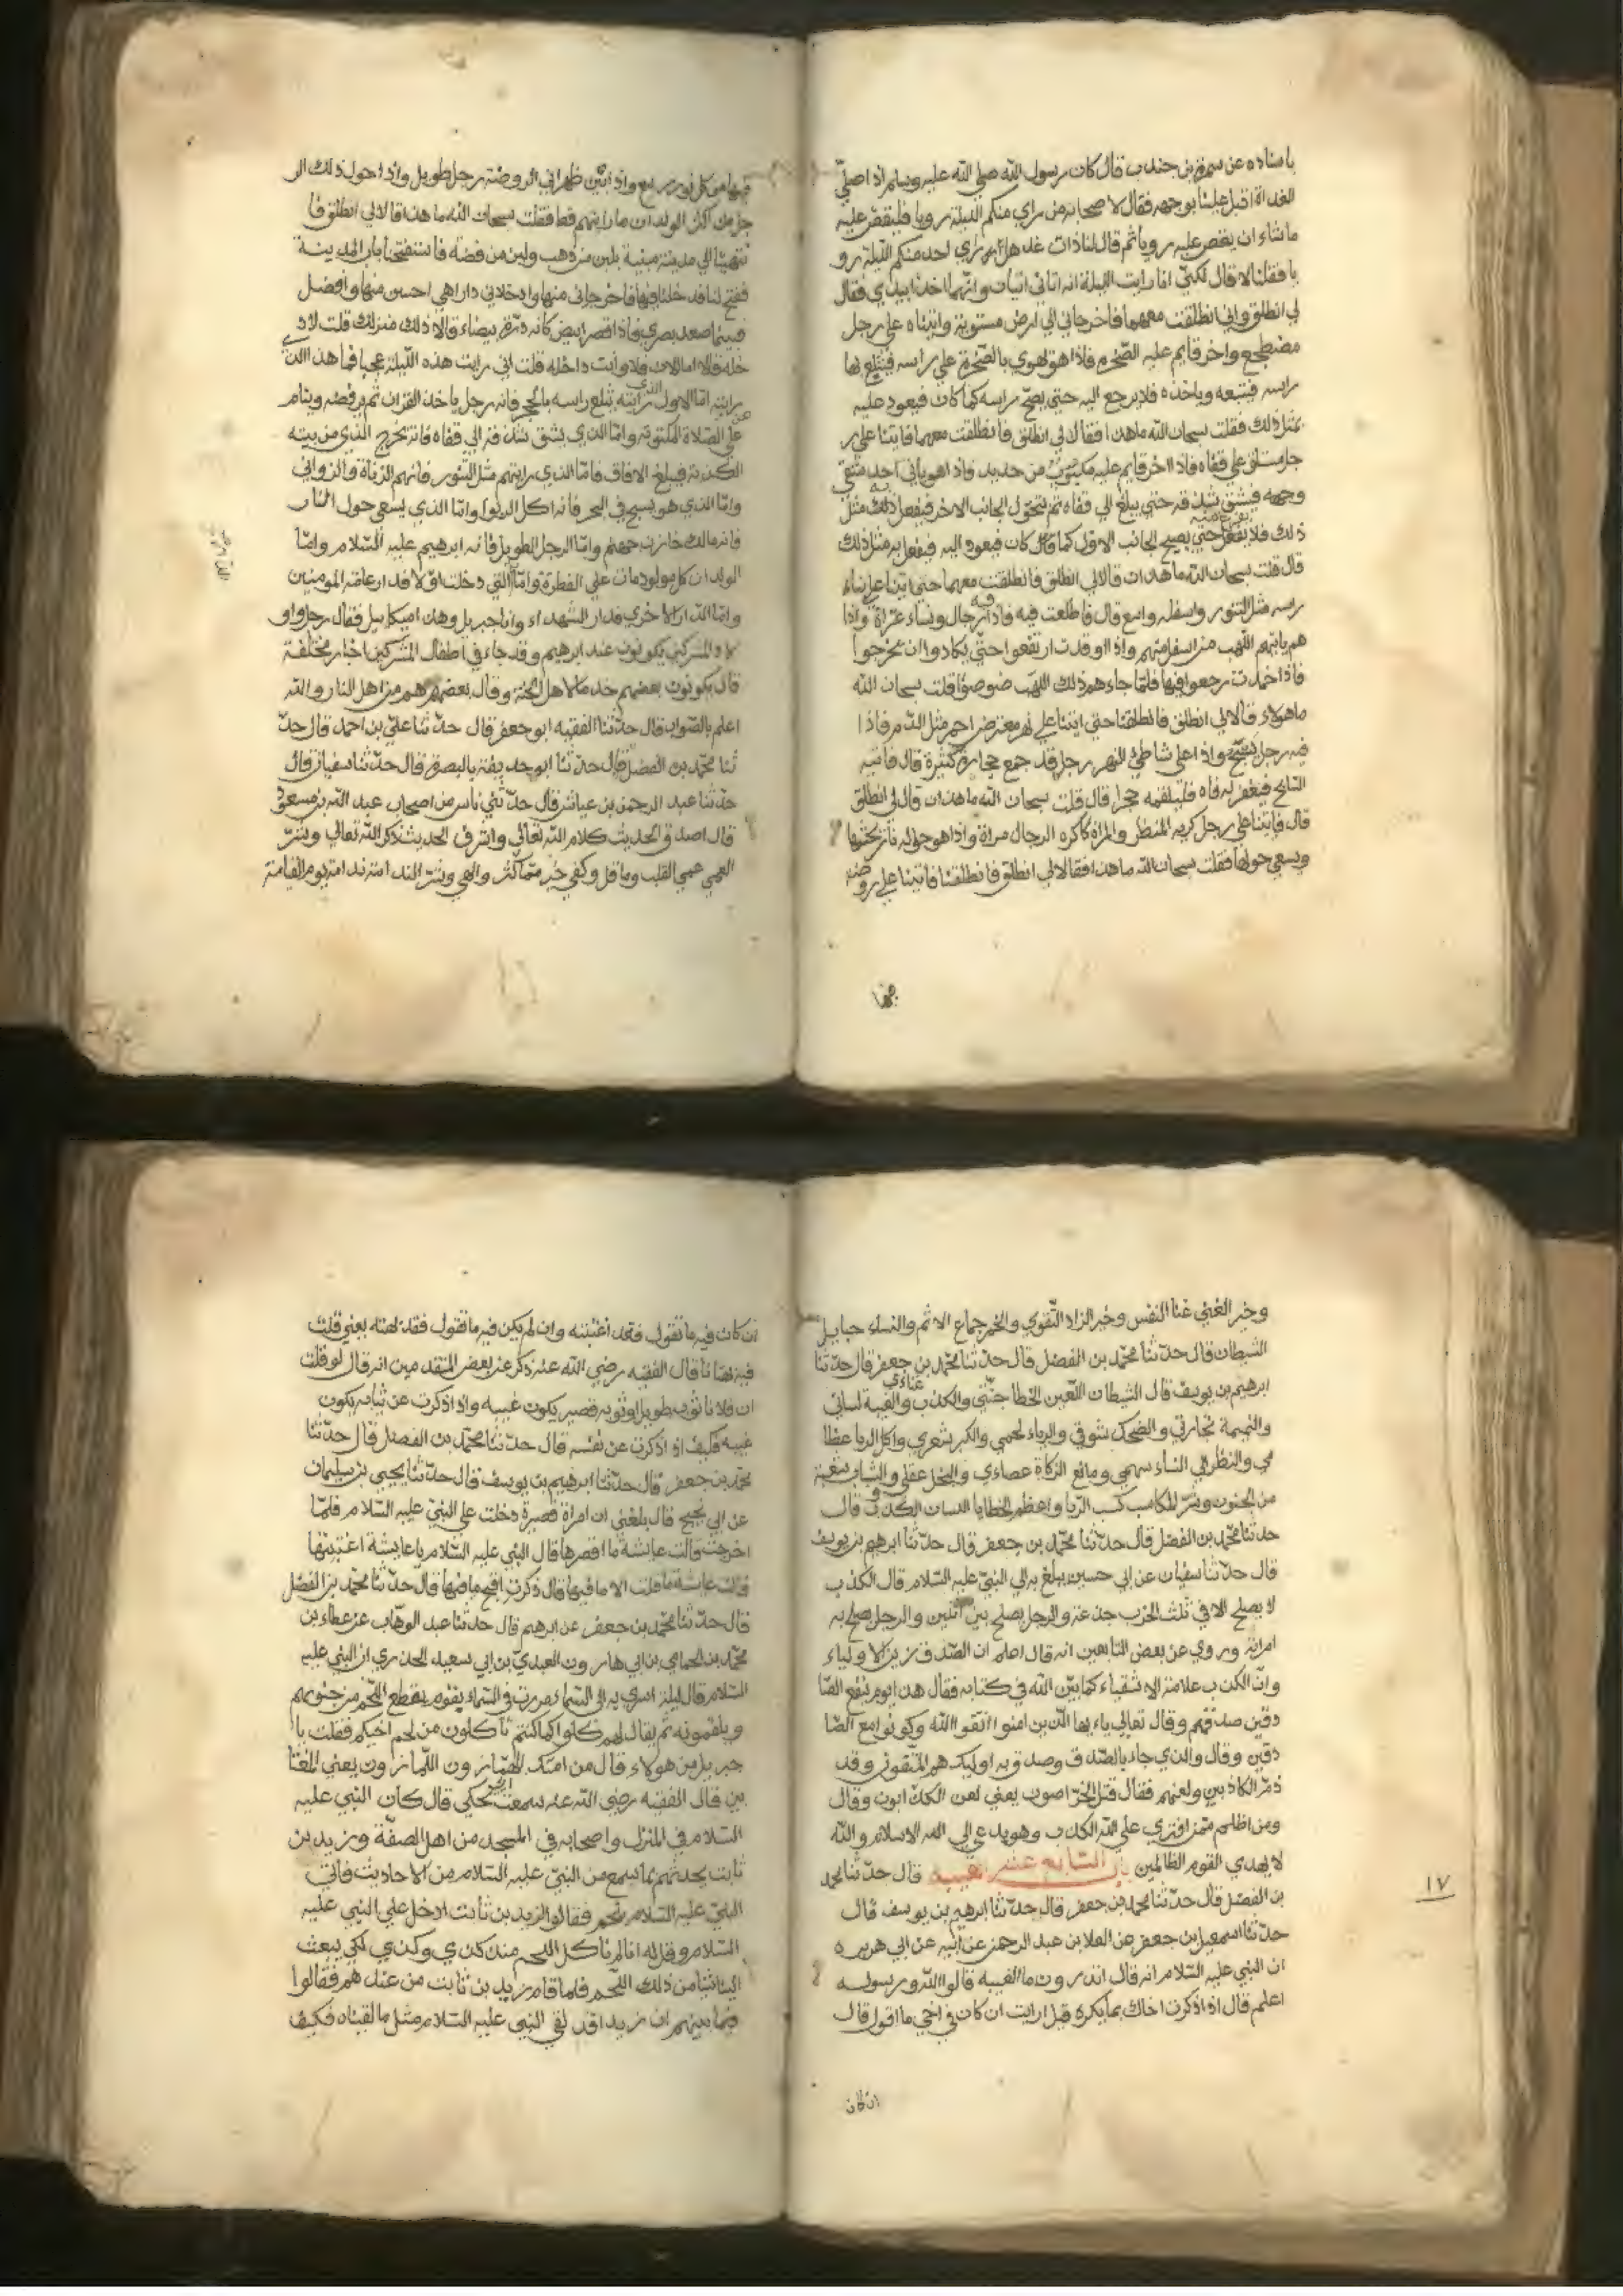 باسناده عن سمرة بن جندب قال كان رسول الله صلي الله عليه وسلم اذا صلي
الغداة اقبل علينا بوجهه فقال لاصحابه من راي منكم الليلة رويا فليقص عليه
ما شاء ان يقص عليه رويا ثم قال لنا ذات غداة هل راي احد منكم الليلة رو
يا فقلنا لا قال لكني انا رايت الليلة انه اتاني اتيان وانهما اخذا بيدي فقال
لي انطلق واني انطلقت معهما فاخرجاني الي ارض مستوية واتيناه علي رجل
مضطجع واخر قايم عليه الصخرة فاذا هو يهوي بالصخرة علي راسه فيثلغ بها
راسه فيتبعه وياخذه فلا يرجع اليه حتي يصح راسه كما كان فيعود عليه
بمثل ذلك فقلت سبحان الله ما هذا فقالا لي انطلق فانطلقت معهما فاتينا علي ر
جل مستلق علي قفاه فاذا اخر قايم عليه بكلوب من حديد فاذا هو ياتي احد شقي
وجهه فيشق شدقه حتي يبلغ الي قفاه ثم يتحول الي الجانب الاخر فيفعل ذلك مثل
ذلك فلا يفرغ منه حتي يصح الجانب الاول كما كان فيعود اليه فيفعل به مثل ذلك
قال قلت سبحان الله ما هذان قالا لي انطلق فانطلقت معهما حتي اتينا علي بناء
رسه مثل التنور واسفله واسع قال فاطلعت فيه فاذا فيه رجال ونساء عراة واذا
هم ياتيهم اللهب من اسفل منهم واذا اوقدت ارتفعوا حتي يكادوا ان يخرجوا
فاذا خمدت رجعوا فيها فلما جاءهم ذلك اللهب ضوضوا قلت سبحان الله
ما هولاء قالا لي انطلق فانطلقنا حتي اتينا علي نهر معترض احمر مثل الدم فاذا
فيه رجل يسبح واذا علي شاطئ النهر رجل قد جمع حجارة كثيرة قال فاتيه
السابح فيفغر له فاه فيلقمه حجرا قال قلت سبحان الله ما هذان قالا لي انطلق
قال فاتينا علي رجل كريه المنظر والمراة كاكره الرجال مراة واذا هو حوله نار يحشها
ويسعي حولها فقلت سبحان الله ما هذا فقالا لي انطلق فانطلقنا فاتينا علي روضة
فيها
فيها من كل نور ربيع واذا بين ظهراني الروضة رجل طويل واذا حول ذلك الر
جل من اكثر الولدان ما رايتهم قط فقلت سبحان الله ما هذا قالا لي انطلق فا
نتهينا الي مدينة مبنية بلبن من ذهب ولبن من فضة فاستفتحنا باب المدينة
ففتح لنا فدخلنا فيها فاخرجاني منها وادخلاني دارا هي احسن منها وافضل
فبينما صعد بصري فاذا قصر ابيض كانه درة بيضاء قالا ذلك منزلك قلت الا اد
خله قالا اما الان فلا وانت داخله قلت اني رايت هذه الليلة عجبا فما هذا الذي
رايته اما الاول الذي رايته يثلغ راسه بالحجر فانه رجل ياخذ القران ثم يرفضه وينام
عن الصلاة المكتوبة واما الذي يشق شدقه الي قفاه فانه يخرج الذي من بيته
الكذبة فيبلغ الافاق فاما الذي رايتهم مثل التنور فانهم الزناة والزواني
واما الذي هو يسبح في البحر فانه اكل الربوا واما الذي يسعي حول النار
فانه مالك خازن جهنم واما الرجل الطويل فانه ابرهيم عليه السلام واما
الولدان كل مولود مات علي الفطرة واما التي دخلت اولا فدار عامة المومنين
واما الدار الاخري فدار الشهداء وانا جبريل وهذا ميكاييل فقال رجل واو
لاد المشركين يكونون عند ابرهيم وقد جاء في اطفال المشركين اخبار مختلفة
قال يكونون بعضهم خدما لاهل الجنة وقال بعضهم هم من اهل النار والله
اعلم بالصواب قال حدثنا الفقيه ابو جعفر قال حدثنا علي بن احمد قال حد
ثنا محمد بن الفضل قال حدثنا ابو حذيفة بالبصرة قال حدثنا سفيان قال
حدثنا عبد الرحمن بن عياش قال حدثني ناس من اصحاب عبد الله بن مسعود
قال اصدق الحديث كلام الله تعالي واشرف الحديث ذكر الله تعالي وشر
العمي عمي القلب وما قل وكفي خير مما كثر والهي وشر الندامة ندامة يوم القيامة
وخير الغني غنا النفس وخير الزاد التقوي والخمر جماع الاثم والنساء حبايل
الشيطان قال حدثنا محمد بن الفضل قال حدثنا محمد بن جعفر قال حدثنا
ابرهيم بن يوسف قال الشيطان اللعين الخطا جنتي والكذب غناءي والغيبة لساني
والنميمة تجارتي والضحك شوقي والرياء لحمي والكبر شعري واكل الربا عظا
مي والنظر الي النساء سهمي ومانع الزكاة عصاءي والبخل عقلي والشباب شعبة
من الجنون وشر المكاسب كسب الربا واعظم الخطايا اللسان الكذوب قال
حدثنا محمد بن الفضل قال حدثنا محمد بن جعفر قال حدثنا ابرهيم بن يوسف
قال حدثنا سفيان عن ابي حسين يبلغ به الي النبي عليه السلام قال الكذب
لا يصلح الا في ثلث الحرب خدعة والرجل يصلح بين اثنين والرجل يصلح به
امراته وروي عن بعض التابعين انه قال اعلم ان الصدق زين الاولياء
وان الكذب علامة الاشقياء كما بين الله في كتابه فقال هذا يوم ينفع الصا
دقين صدقهم وقال تعالي ياءيها الذين امنوا اتقوا الله وكونوا مع الصا
دقين وقال والذي جاء بالصدق وصدق به اوليك هم المتقون وقد
ذم الكاذبين ولعنهم فقال قتل الخراصون يعني لعن الكذابون وقال
ومن اظلم ممن افتري علي الله الكذب وهو يدعي الي الاسلام والله
لا يهدي القوم الظالمين باب السابع عشر الغيبة قال حدثنا محمد
١٧
بن الفضل قال حدثنا محمد بن جعفر قال حدثنا ابرهيم بن يوسف قال
حدثنا اسمعيل بن جعفر عن العلا بن عبد الرحمن عن ابيه عن ابي هريره
ان النبي عليه السلام انه قال اتدرون ما الغيبة قالوا الله ورسوله
اعلم قال اذا ذكرت اخاك بما يكره قيل ارايت ان كان في اخي ما اقول قال
ان كان
ان كان فيه ما تقول فقد اغتبته وان لم يكن فيه ما تقول فقد بهته يعني قلت
فيه بهتانا قال الفقيه رضي الله عنه ذكر عن بعض المتقدمين انه قال لو قلت
ان فلانا ثوبه طويل او ثوبه قصير يكون غيبة واذا ذكرت عن ثيابه يكون
غيبه فكيف اذ اذكرت عن نفسه قال حدثنا محمد بن الفضل قال حدثنا
محمد بن جعفر قال حدثنا ابرهيم بن يوسف قال حدثنا يحيي بن سليمان
عن ابي نجيح قال بلغني ان امراة قصيرة دخلت علي النبي عليه السلام فلما
اخرجت قالت عايشة ما اقصرها قال النبي عليه السلام يا عايشة اغتبتها
قالت عايشة ما قلت الا ما فيها قال ذكرت اقبح ما فيها قال حدثنا محمد بن الفضل
قال حدثنا محمد بن جعفر عن ابرهيم قال حدثنا عبد الوهاب عن عطاء بن
محمد بن الحمامي بن ابي هارون العبدي بن ابي سعيد الخدري ان النبي عليه
السلام قال ليلة اسري به الي السماء مررت في السماء بقوم يقطع اللحم من جنوبهم
ويلقمونه ثم يقال لهم كلوا كما كنتم تاكلون من لحم اخيكم فقلت يا
جبريل من هولاء قال من امتك الهمازون اللمازون يعني المغتا
بين قال الفقيه رضي الله عنه سمعت ابي يحكي قال كان النبي عليه
السلام في المنزل واصحابه في المسجد من اهل الصفة وزيد بن
ثابت يحدثهم بما سمع من النبي عليه السلام من الاحاديث فاتي
النبي عليه السلام بلحم فقالوا لزيد بن ثابت ادخل علي النبي عليه
السلام وقل له انا لم ناكل اللحم منذ كذي وكذي لكي يبعث
الينا شيا من ذلك اللحم فلما قام زيد بن ثابت من عندهم فقالوا
فيما بينهم ان زيدا قد لقي النبي عليه السلام مثل ما لقيناه فكيف